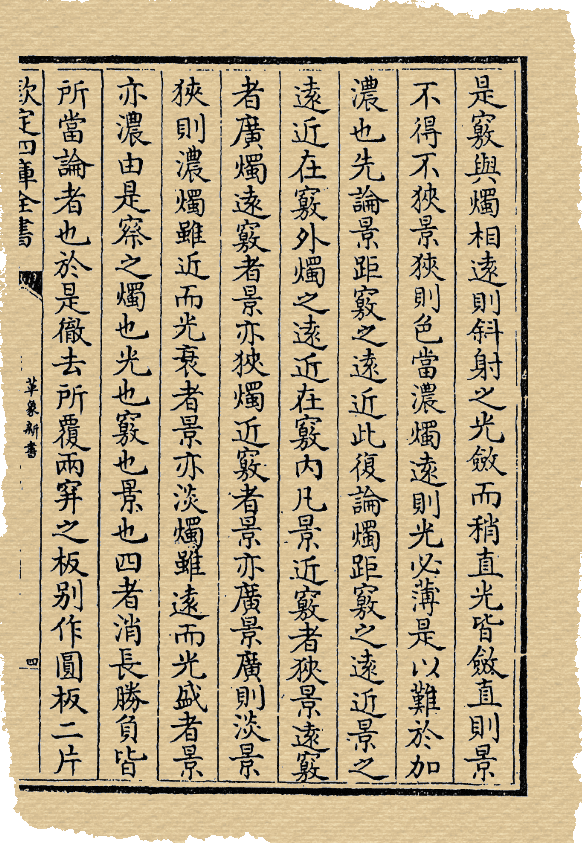 是竅與燭相遠則斜射之光斂而稍直光皆斂直則景
不得不狹景狹則色當濃燭遠則光必薄是以難於加
濃也先論景距竅之遠近此復論燭距竅之遠近景之
遠近在竅外燭之遠近在竅内凡景近竅者狹景遠竅
者廣燭遠竅者景亦狹燭近竅者景亦廣景廣則淡景
狹則濃燭雖近而光衰者景亦淡燭雖遠而光盛者景
亦濃由是察之燭也光也竅也景也四者消長勝負皆
所當論者也於是徹去所覆兩穽之板别作圓板二片
欽定四庫全書
革象新書
四